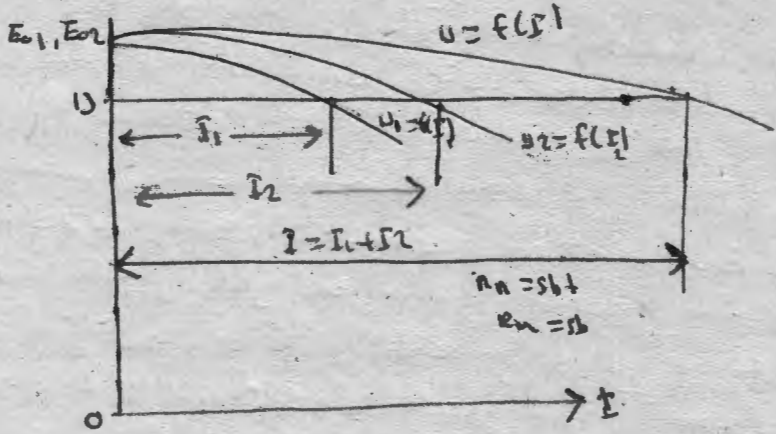 E01, E02
U = f(I)
U
I1
U1 = f(I)
U2 = f(I2)
I2
I = I1 + I2
nn = sbt
Rm = sb
0
I